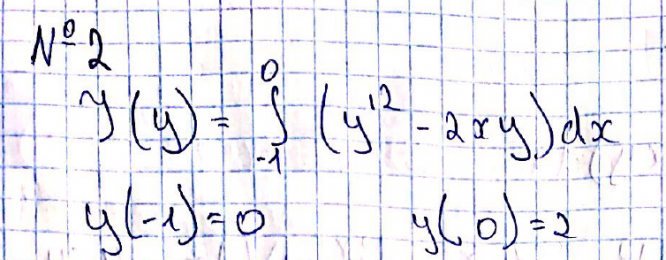 № 2
J(y) = ∫₋₁⁰ (y'² - 2xy)dx
y(-1) = 0 y(0) = 2